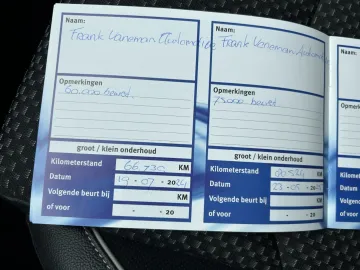 Naam:
Frank Veneman Automotive
Opmerkingen
60.000 beurt.
groot / klein onderhoud
Kilometerstand 66 730 KM
Datum 19 - 07 - 2024
Volgende beurt bij KM
of voor - - 20
Naam:
Frank Veneman Automotive
Opmerkingen
75000 beurt
groot / klein onderhoud
Kilometerstand KM
Datum 23 - 05 - 20
Volgende beurt bij KM
of voor - - 20
Na
Op
Kilo
Dat
Vol
of v